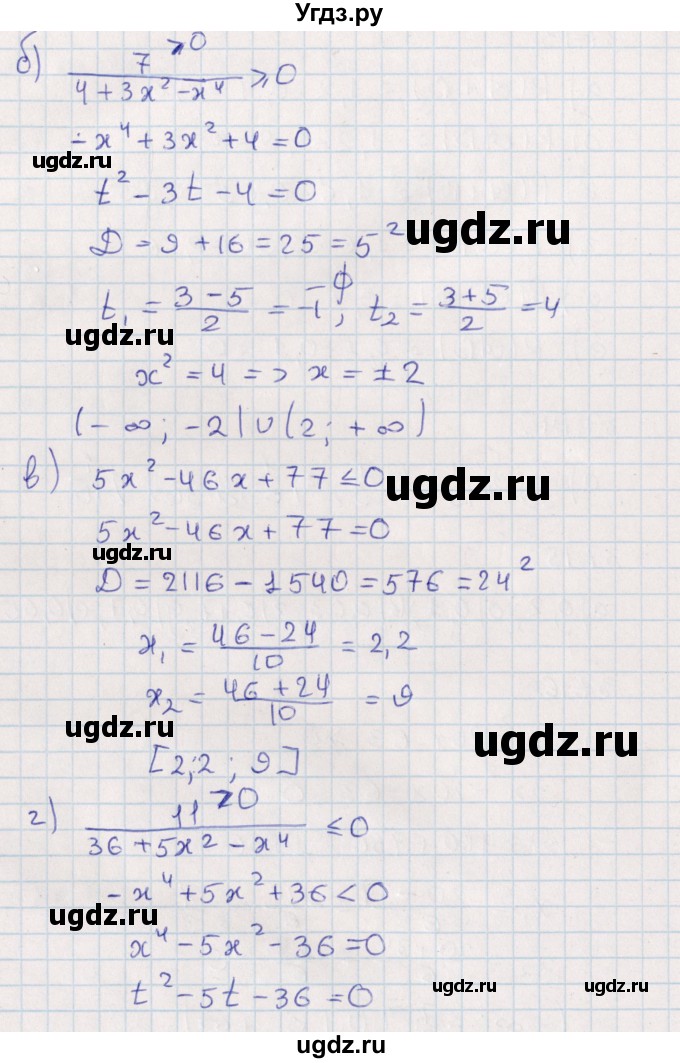 Угдз.ру
б) 7 ≥0 / (4 + 3x² − x⁴) ≥ 0
−x⁴ + 3x² + 4 = 0
ugdz.ru
t² − 3t − 4 = 0
ugdz.ru
Д = 9 + 16 = 25 = 5²
t₁ = (3 − 5)/2 = −1 – ф; t₂ = (3 + 5)/2 = 4
ugdz.ru
x² = 4 => x = ±2
(−∞; −2) ∪ (2; +∞)
в) 5x² − 46x + 77 ≤ 0
ugdz.ru
5x² − 46x + 77 = 0
ugdz.ru
Д = 2116 − 1540 = 576 = 24²
x₁ = (46 − 24)/10 = 2,2
x₂ = (46 + 24)/10 = 9
ugdz.ru
ugdz.ru
[2;2 ; 9]
г) 11 >0 / (36 + 5x² − x⁴) ≤ 0
−x⁴ + 5x² + 36 < 0
ugdz.ru
x⁴ − 5x² − 36 = 0
t² − 5t − 36 = 0
ugdz.ru
ugdz.ru
ugdz.ru